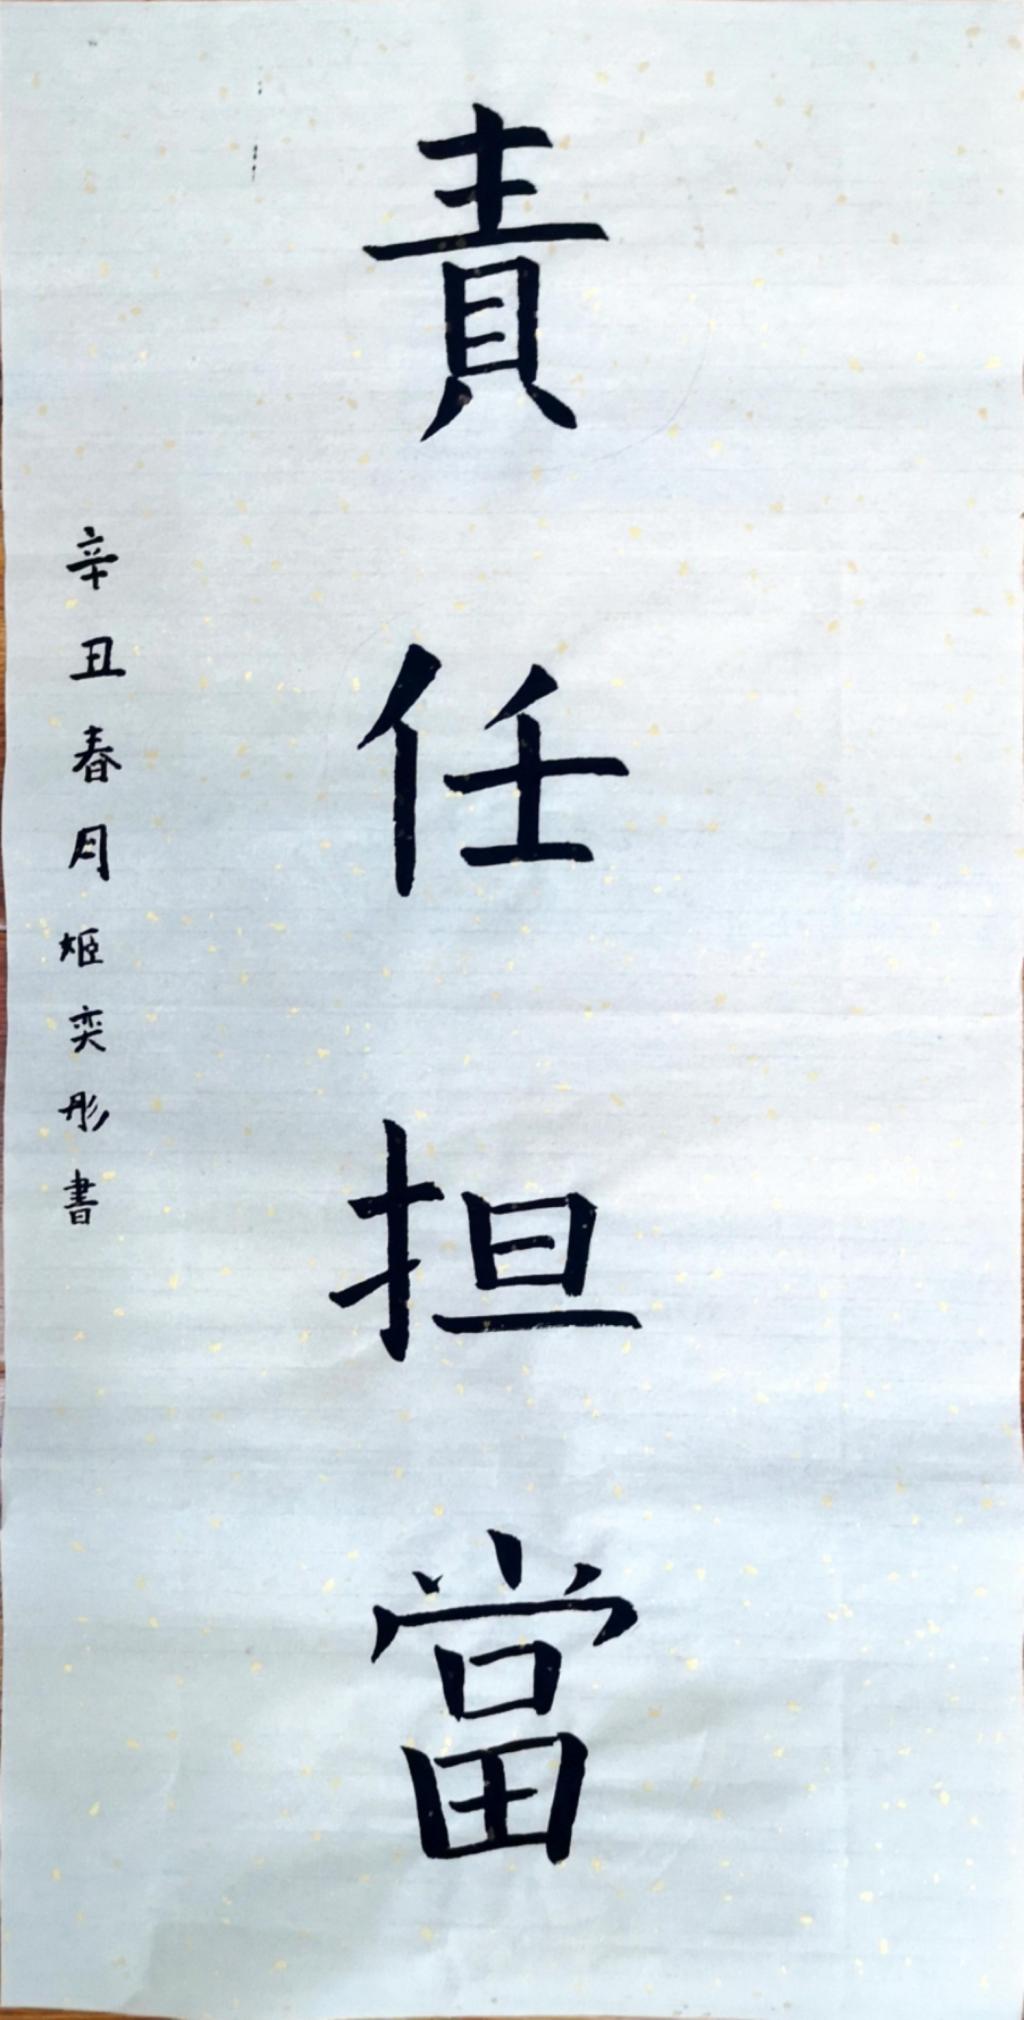 責任担當
辛丑春月姬奕彤書